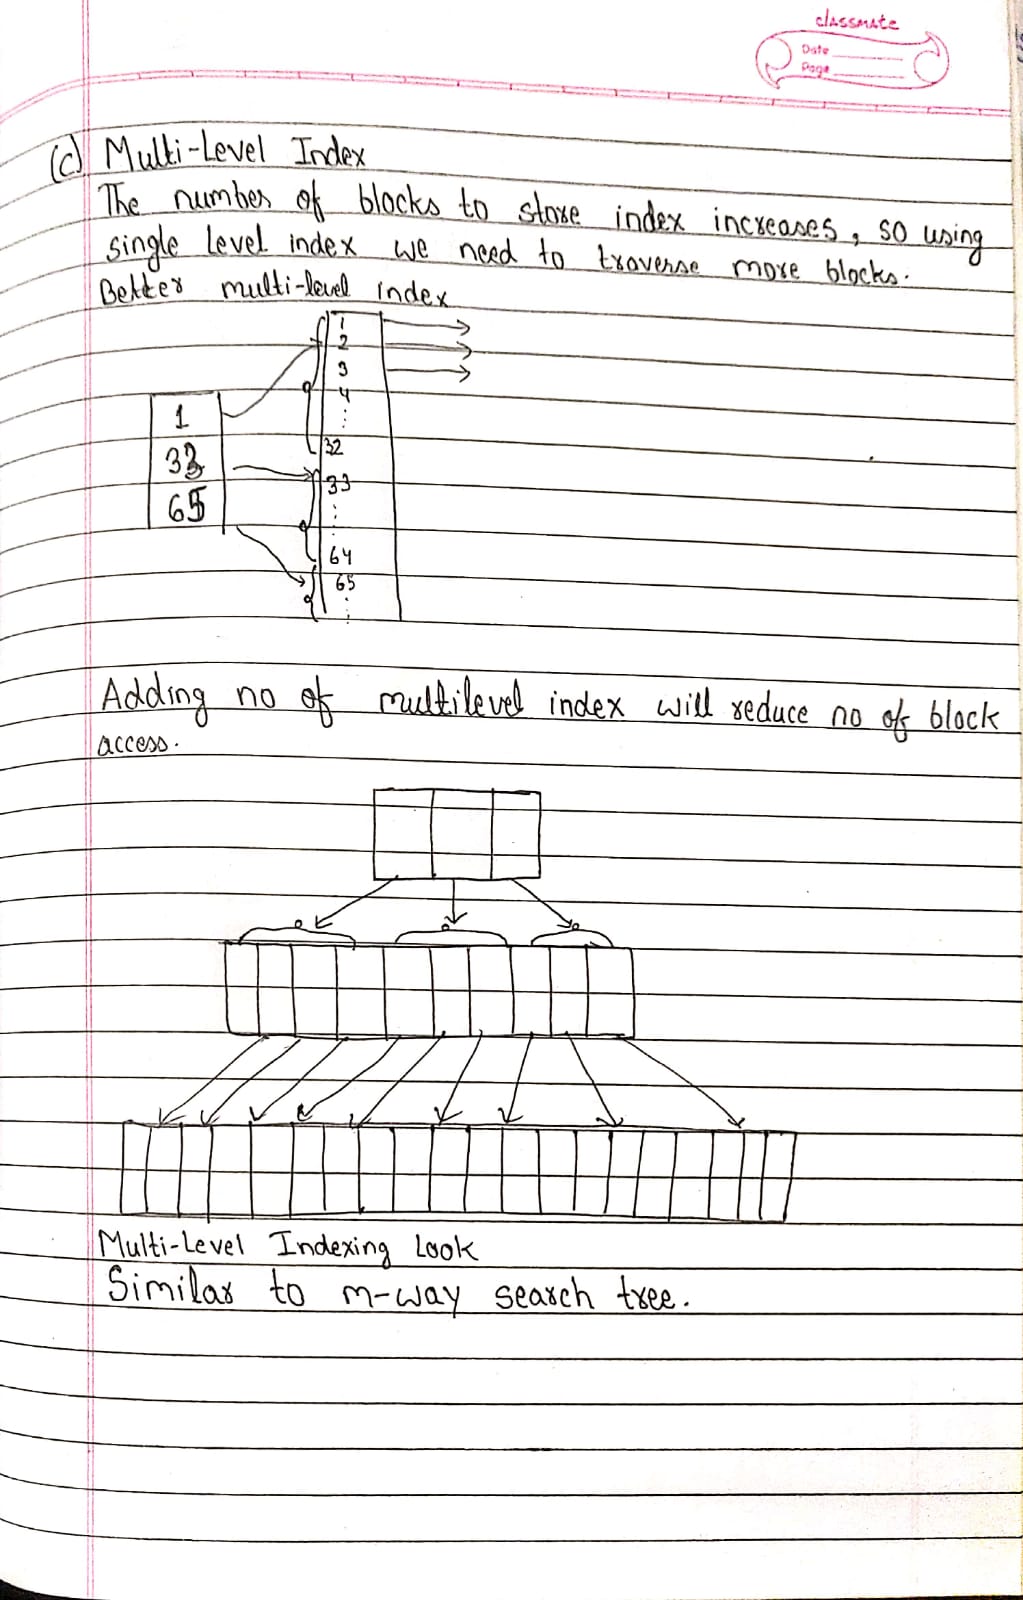 classmate
Date
Page
(c) Multi-Level Index
The number of blocks to store index increases, so using
single level index we need to traverse more blocks.
Better multi-level index
1
2
3
4
32
33
64
65
1
33
65
Adding no of multilevel index will reduce no of block
access.
Multi-Level Indexing Look
Similar to m-way search tree.